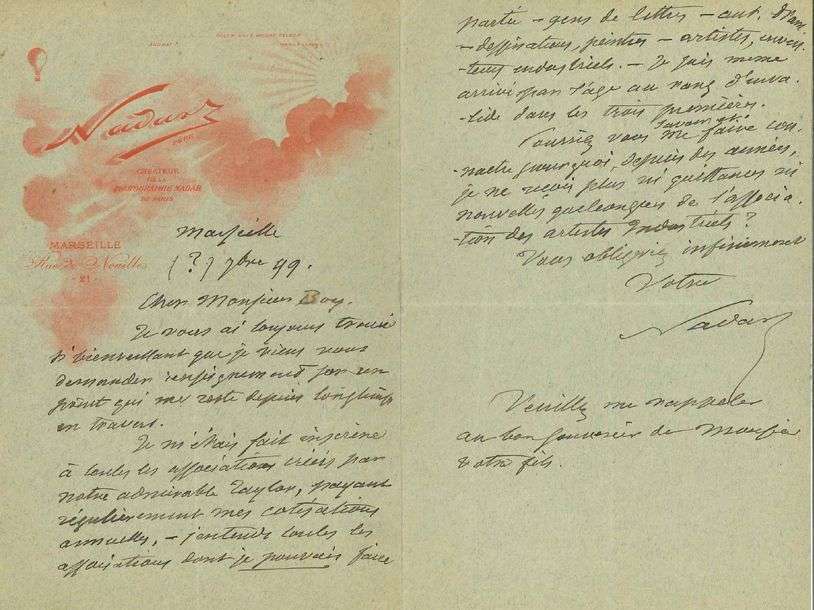 Nadar
CRÉATEUR
DE LA
PHOTOGRAPHIE NADAR
DE PARIS
MARSEILLE
Rue de Noailles
21
Marseille
(?) 7bre 99.
Cher Monsieur Boy.
Je vous ai toujours trouvé
si bienveillant que je viens vous
demander renseignement sur un
point qui me reste depuis longtemps
en travers.
Je m'étais fait inscrire
à toutes les associations créées par
notre admirable Taylor, payant
régulièrement mes cotisations
annuelles, – j'entends toutes les
associations dont je pouvais faire
partie – gens de lettres – aut. dram.
– dessinateurs, peintres – artistes, inven-
-teurs industriels. – Je suis même
arrivé par l'âge au rang d'inva-
-lide dans les trois premières.
Pourriez vous savoir et me faire con-
-naître pourquoi, depuis des années,
je ne reçois plus ni quittances ni
nouvelles quelconques de l'associa-
-tion des artistes Industriels?
Vous obligeriez infiniment
Votre
Nadar
Veuillez me rappeler
au bon souvenir de Monsieur
votre fils.